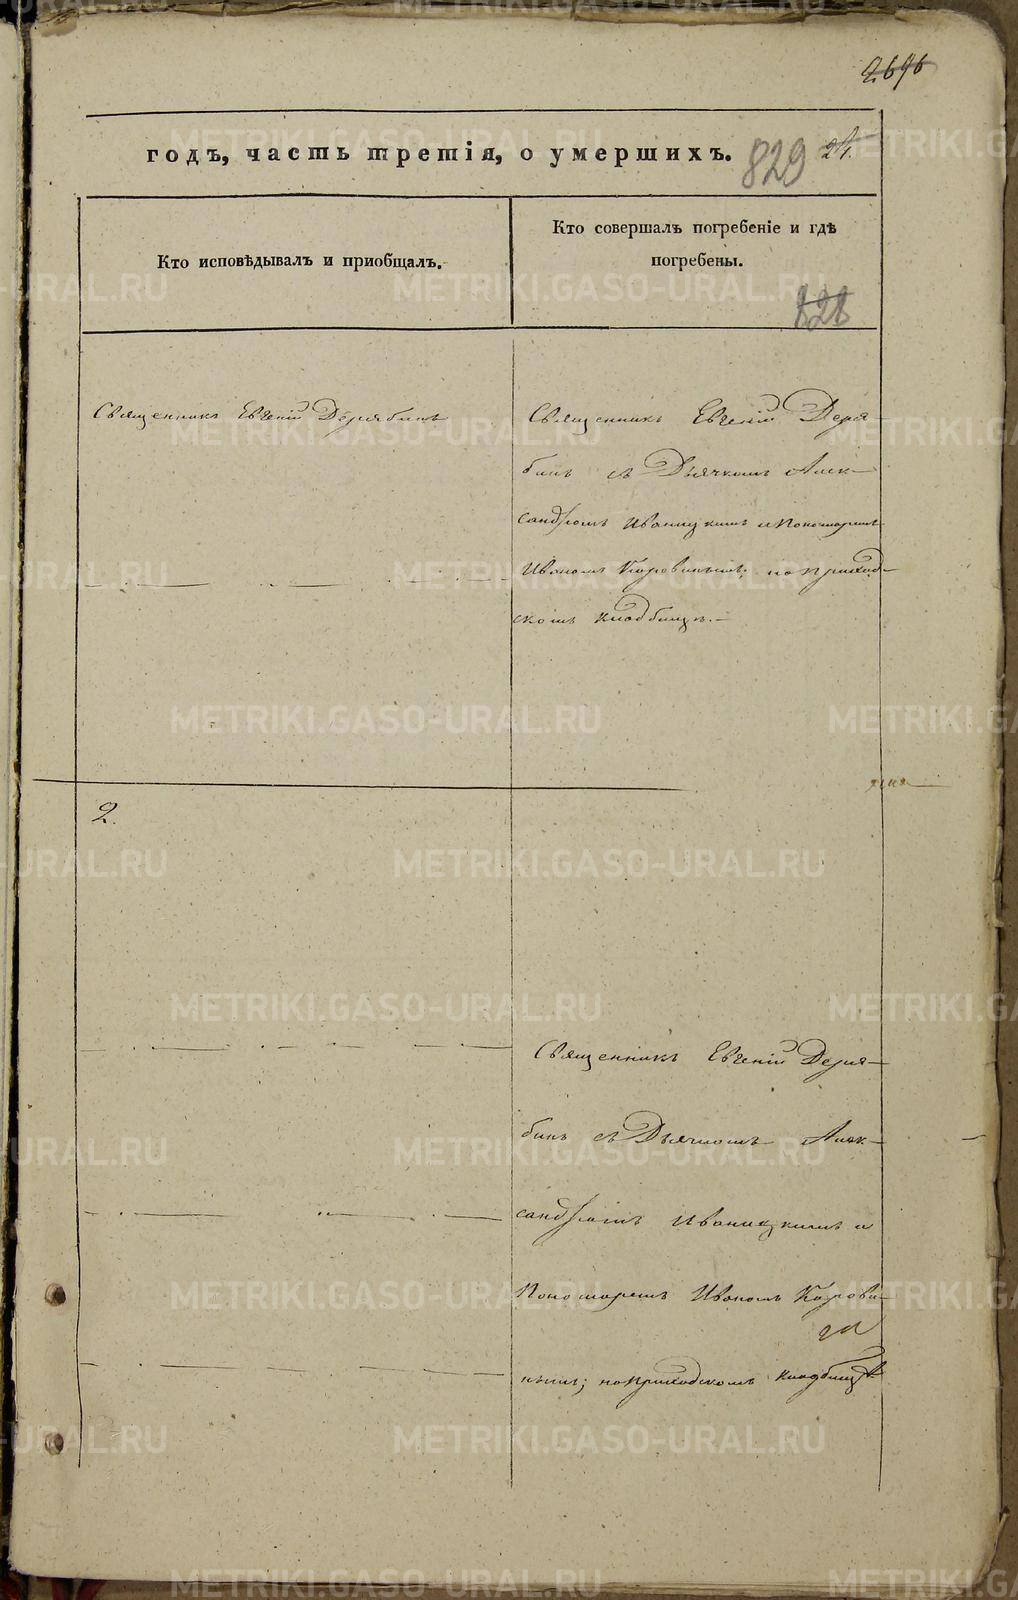 2696
годъ, часть третія, о умершихъ. 829 24.
Кто исповѣдывалъ и приобщалъ.
Кто совершалъ погребеніе и гдѣ
погребены.
828
Священникъ Евгеній Дерябинъ
Священникъ Евгеній Деря-
бинъ съ Дьячкомъ Алек-
сандромъ Иваницкимъ и Пономаремъ
Иваномъ Коровинымъ; на приход-
скомъ кладбищѣ.-
2.
Священникъ Евгеній Деря-
бинъ съ Дьячкомъ Алек-
сандромъ Иваницкимъ и
Пономаремъ Иваномъ Корови-
нымъ; на приходскомъ кладбищѣ
METRIKI.GASO-URAL.RU